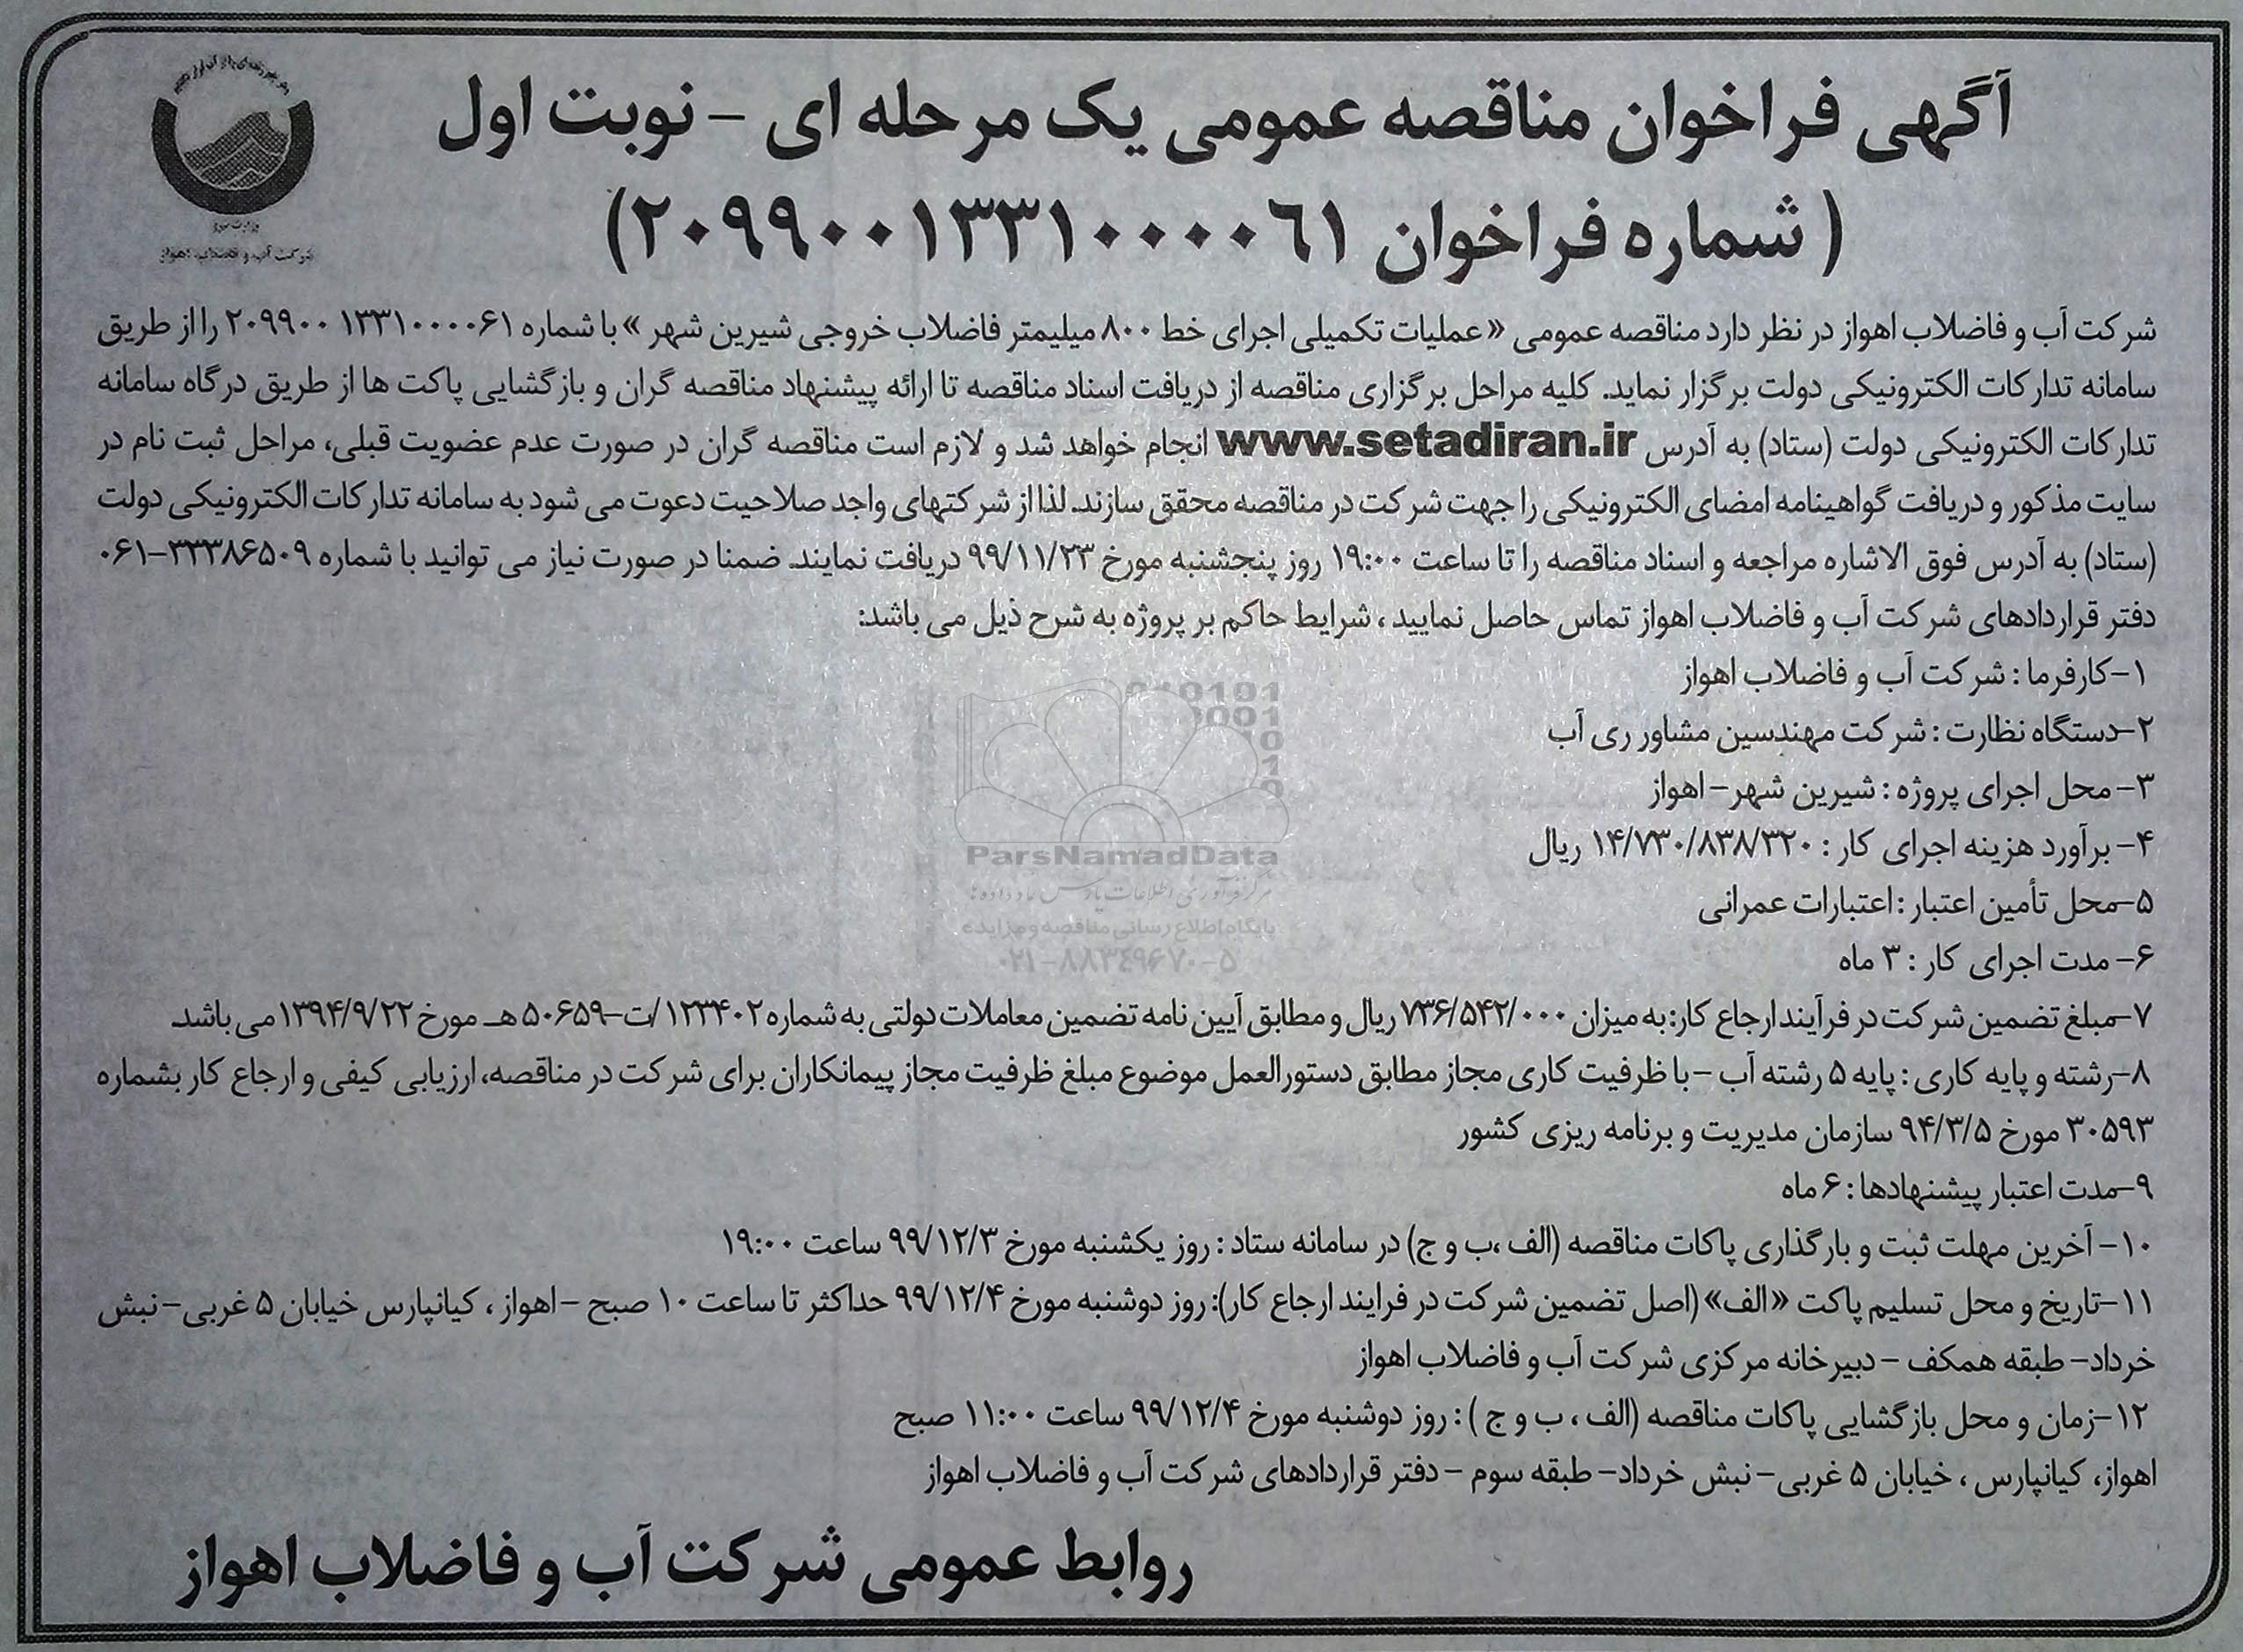 آگهی فراخوان مناقصه عمومی یک مرحله ای - نوبت اول
(شماره فراخوان ۲۰۹۹۰۰۱۳۳۱۰۰۰۰۶۱)
وزارت نیرو
شرکت آب و فاضلاب اهواز
شرکت آب و فاضلاب اهواز در نظر دارد مناقصه عمومی «عملیات تکمیلی اجرای خط ۸۰۰ میلیمتر فاضلاب خروجی شیرین شهر» با شماره ۲۰۹۹۰۰ ۱۳۳۱۰۰۰۰۶۱ را از طریق
سامانه تدارکات الکترونیکی دولت برگزار نماید. کلیه مراحل برگزاری مناقصه از دریافت اسناد مناقصه تا ارائه پیشنهاد مناقصه گران و بازگشایی پاکت ها از طریق درگاه سامانه
تدارکات الکترونیکی دولت (ستاد) به آدرس www.setadiran.ir انجام خواهد شد و لازم است مناقصه گران در صورت عدم عضویت قبلی، مراحل ثبت نام در
سایت مذکور و دریافت گواهینامه امضای الکترونیکی را جهت شرکت در مناقصه محقق سازند. لذا از شرکتهای واجد صلاحیت دعوت می شود به سامانه تدارکات الکترونیکی دولت
(ستاد) به آدرس فوق الاشاره مراجعه و اسناد مناقصه را تا ساعت ۱۹:۰۰ روز پنجشنبه مورخ ۹۹/۱۱/۲۳ دریافت نمایند. ضمنا در صورت نیاز می توانید با شماره ۳۳۳۸۶۵۰۹-۰۶۱
دفتر قراردادهای شرکت آب و فاضلاب اهواز تماس حاصل نمایید، شرایط حاکم بر پروژه به شرح ذیل می باشد:
۱-کارفرما : شرکت آب و فاضلاب اهواز
۲-دستگاه نظارت : شرکت مهندسین مشاور ری آب
۳- محل اجرای پروژه : شیرین شهر- اهواز
۴- برآورد هزینه اجرای کار : ۱۴/۷۳۰/۸۳۸/۳۲۰ ریال
۵-محل تأمین اعتبار : اعتبارات عمرانی
۶- مدت اجرای کار : ۳ ماه
۷-مبلغ تضمین شرکت در فرآیند ارجاع کار: به میزان ۷۳۶/۵۴۲/۰۰۰ ریال و مطابق آیین نامه تضمین معاملات دولتی به شماره ۱۲۳۴۰۲/ت-۵۰۶۵۹ هـ مورخ ۱۳۹۴/۹/۲۲ می باشد.
۸-رشته و پایه کاری : پایه ۵ رشته آب - با ظرفیت کاری مجاز مطابق دستورالعمل موضوع مبلغ ظرفیت مجاز پیمانکاران برای شرکت در مناقصه، ارزیابی کیفی و ارجاع کار بشماره
۳۰۵۹۳ مورخ ۹۴/۳/۵ سازمان مدیریت و برنامه ریزی کشور
۹-مدت اعتبار پیشنهادها : ۶ ماه
۱۰- آخرین مهلت ثبت و بارگذاری پاکات مناقصه (الف ،ب و ج) در سامانه ستاد : روز یکشنبه مورخ ۹۹/۱۲/۳ ساعت ۱۹:۰۰
۱۱-تاریخ و محل تسلیم پاکت «الف» (اصل تضمین شرکت در فرایند ارجاع کار): روز دوشنبه مورخ ۹۹/۱۲/۴ حداکثر تا ساعت ۱۰ صبح - اهواز ، کیانپارس خیابان ۵ غربی- نبش
خرداد- طبقه همکف - دبیرخانه مرکزی شرکت آب و فاضلاب اهواز
۱۲-زمان و محل بازگشایی پاکات مناقصه (الف ، ب و ج ) : روز دوشنبه مورخ ۹۹/۱۲/۴ ساعت ۱۱:۰۰ صبح
اهواز، کیانپارس ، خیابان ۵ غربی- نبش خرداد- طبقه سوم - دفتر قراردادهای شرکت آب و فاضلاب اهواز
روابط عمومی شرکت آب و فاضلاب اهواز
ParsNamadData
پایگاه اطلاع رسانی مناقصه و مزایده
۰۲۱-۸۸۳۴۹۶۷۰-۵